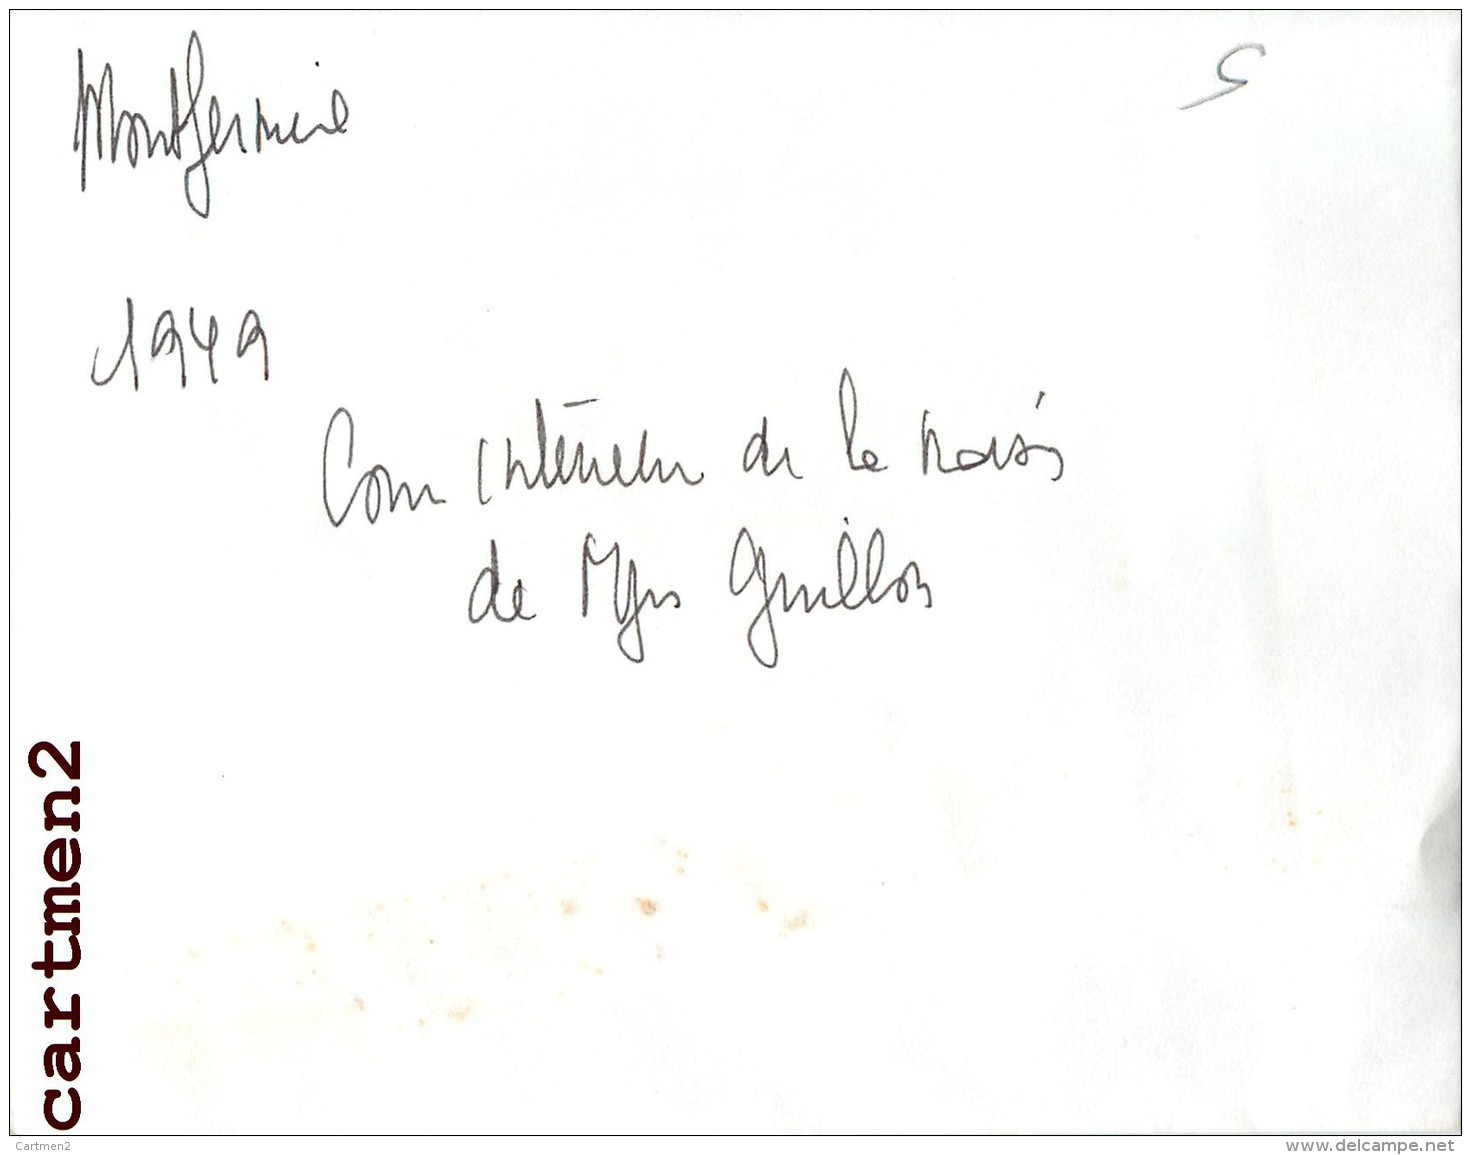 Montfermeil
5
1949
Cour intérieur de la maison
de Mgr Guillon
cartmen2
Cartmen2
www.delcampe.net